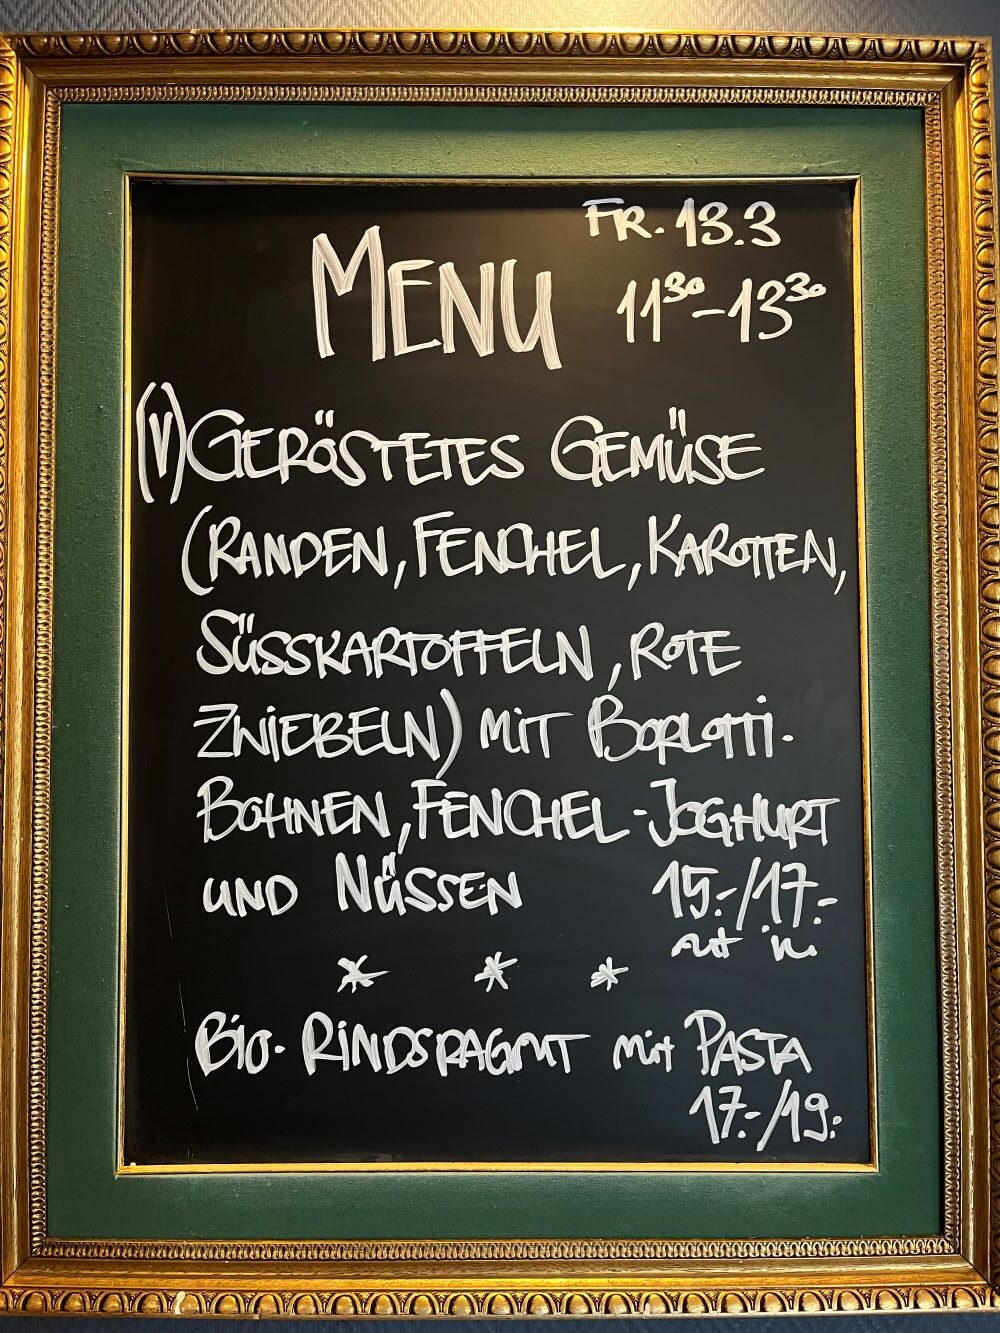 FR. 13.3
MENU 11³⁰-13³⁰
(V) GERÖSTETES GEMÜSE
(RANDEN, FENCHEL, KAROTTEN,
SÜSSKARTOFFELN, ROTE
ZWIEBELN) MIT BORLOTTI-
BOHNEN, FENCHEL-JOGHURT
UND NÜSSEN 15.-/17.-
* * *
BIO-RINDSRAGOUT MIT PASTA
17.-/19.-